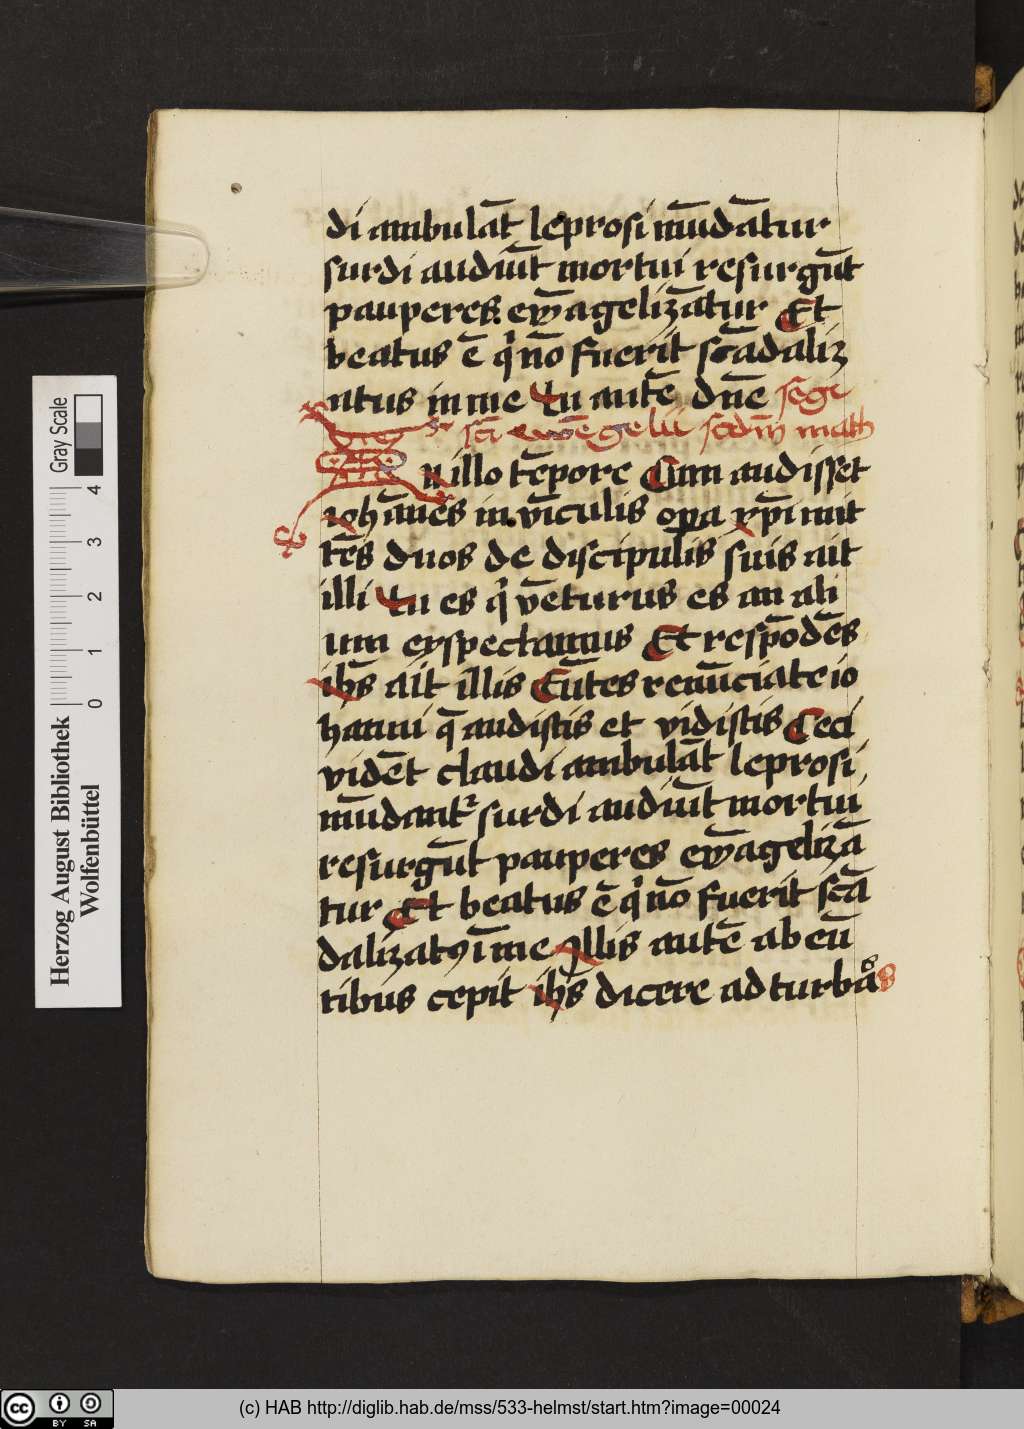 di ambulāt leprosi mūdātur
surdi audiūt mortui resurgūt
pauperes ew̄agelizātur Et
beatus ē qͥ nō fuerit scādaliz
atus in me tu autē dn̄e sege
sc̄i ewēgelii scdm̄ math
In illo tēpore Cum audisset
iohānes in vīculis oꝑa xp̄i mit
tēs duos de discipulis suis ait
illi tu es qͥ vēturus es an ali
um exspectamus Et respōdēs
ih̄s ait illis Eūtes renūciate io
hanni q̄ audistis et vidistis Ceci
vidēt claudi ambulāt leprosi
mūdantᷣ surdi audiūt mortui
resurgūt pauperes ew̄agelizā
tur Et beatus ē qͥ nō fuerit scā
dalizatꝰ ī me Illis autē abeū
tibus cepit ih̄s dicere ad turbas
Gray Scale
0 1 2 3 4
Herzog August Bibliothek
Wolfenbüttel
cc BY SA
(c) HAB http://diglib.hab.de/mss/533-helmst/start.htm?image=00024